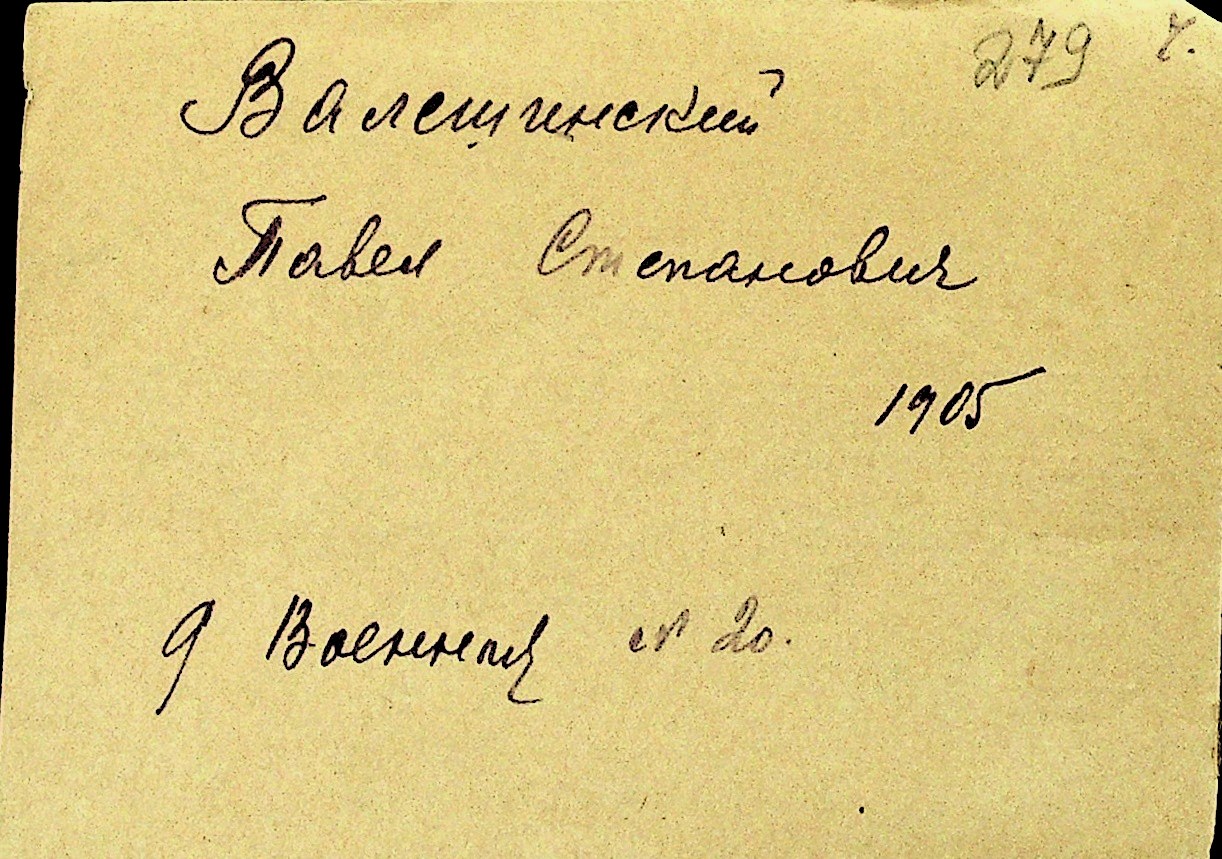 279 г.
Валещинский
Павел Степанович
1905
9 Военный № 20.